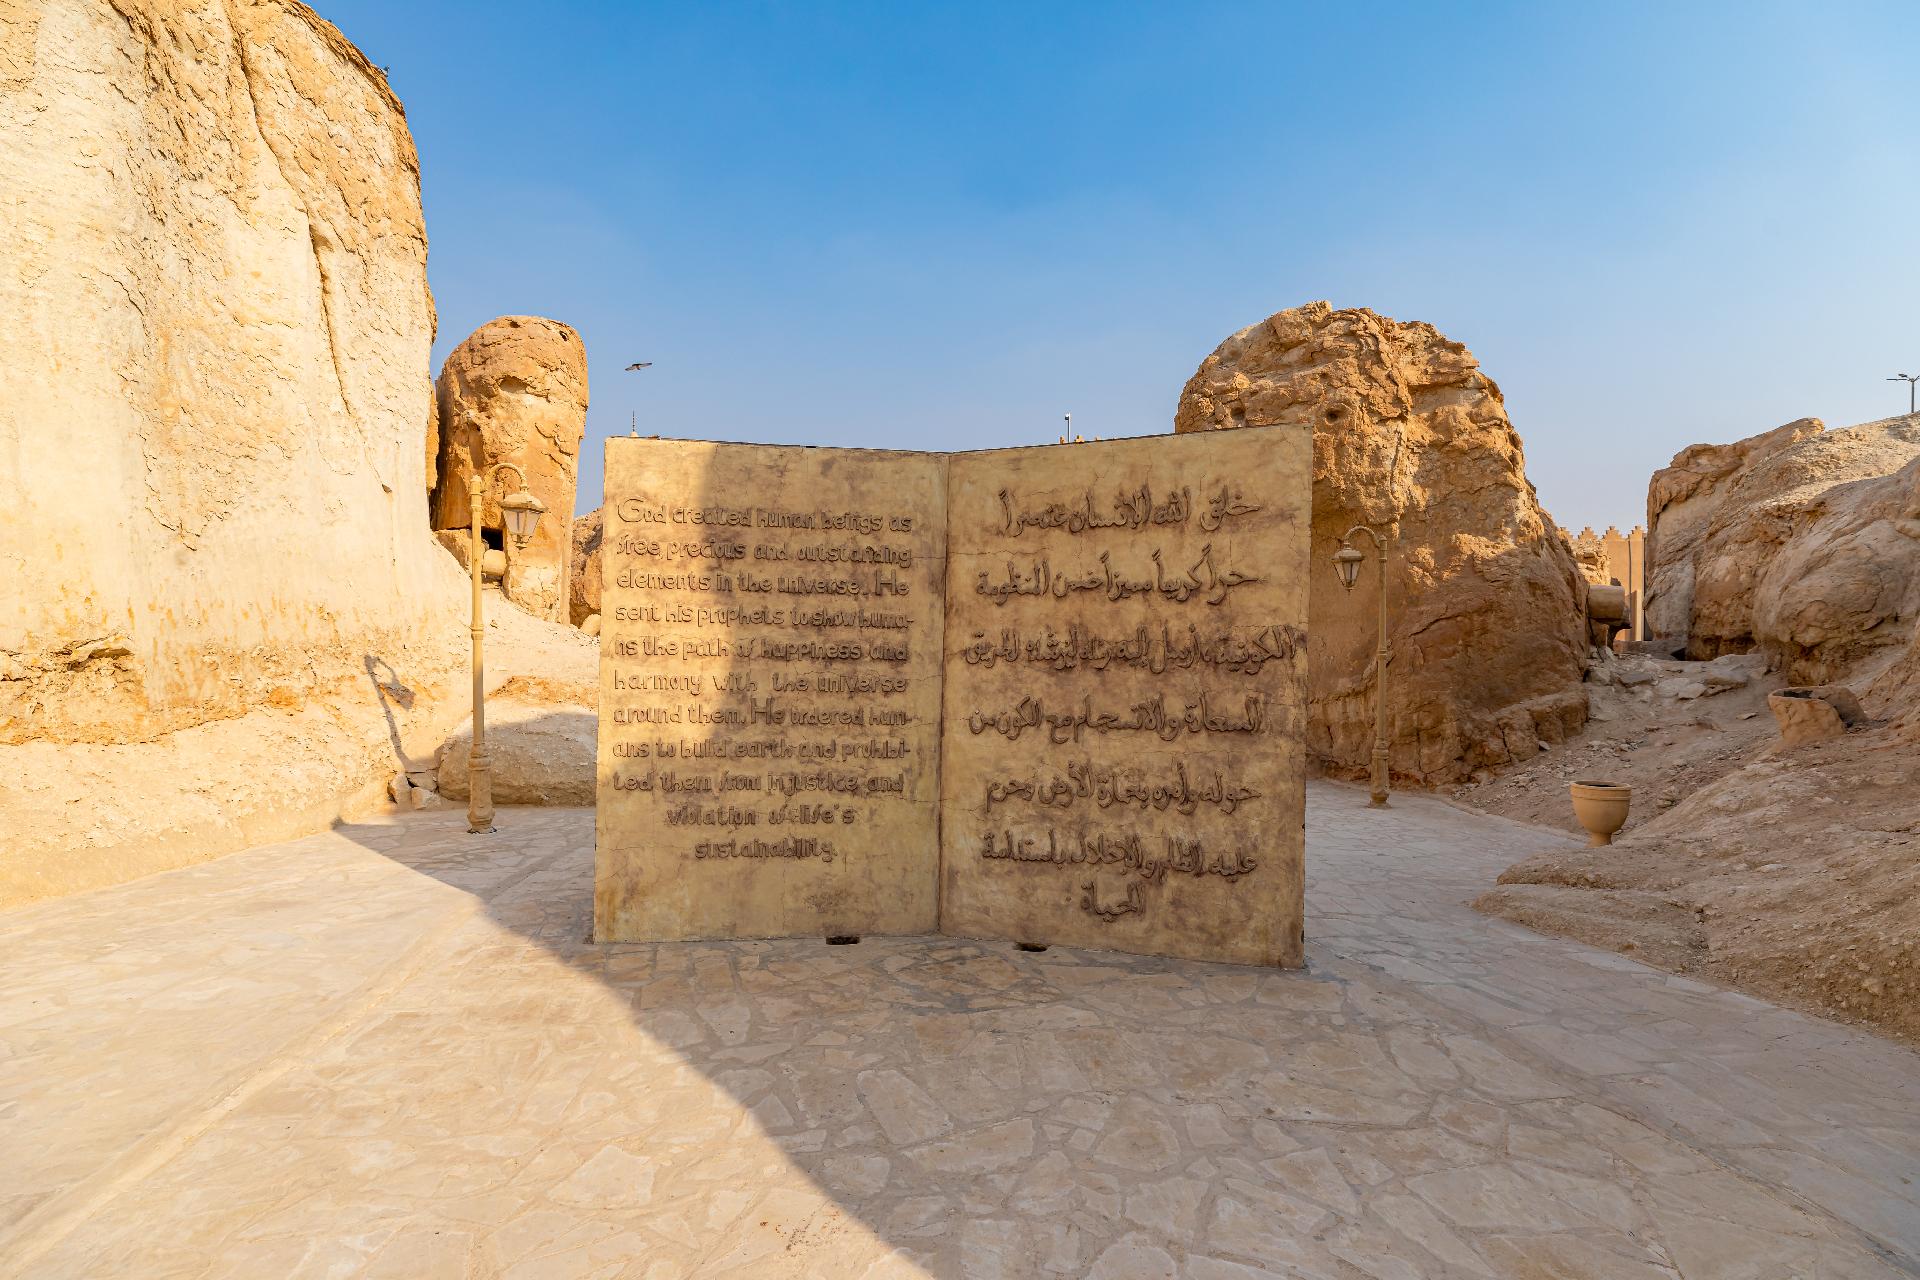 God created human beings as
free, precious and outstanding
elements in the universe. He
sent his prophets to show huma-
ns the path of happiness and
harmony with the universe
around them. He ordered hum-
ans to build earth and prohibi-
ted them from injustice and
violation of life's
sustainability.
خلق الله الإنسان عنصراً
حراً كريماً مميزاً ضمن المنظومة
الكونية، أرسل إليه رسله ليرشدوه لطريق
السعادة والانسجام مع الكون من
حوله وأمره بعمارة الأرض وحرم
عليه الظلم والإخلال باستدامة
الحياة.